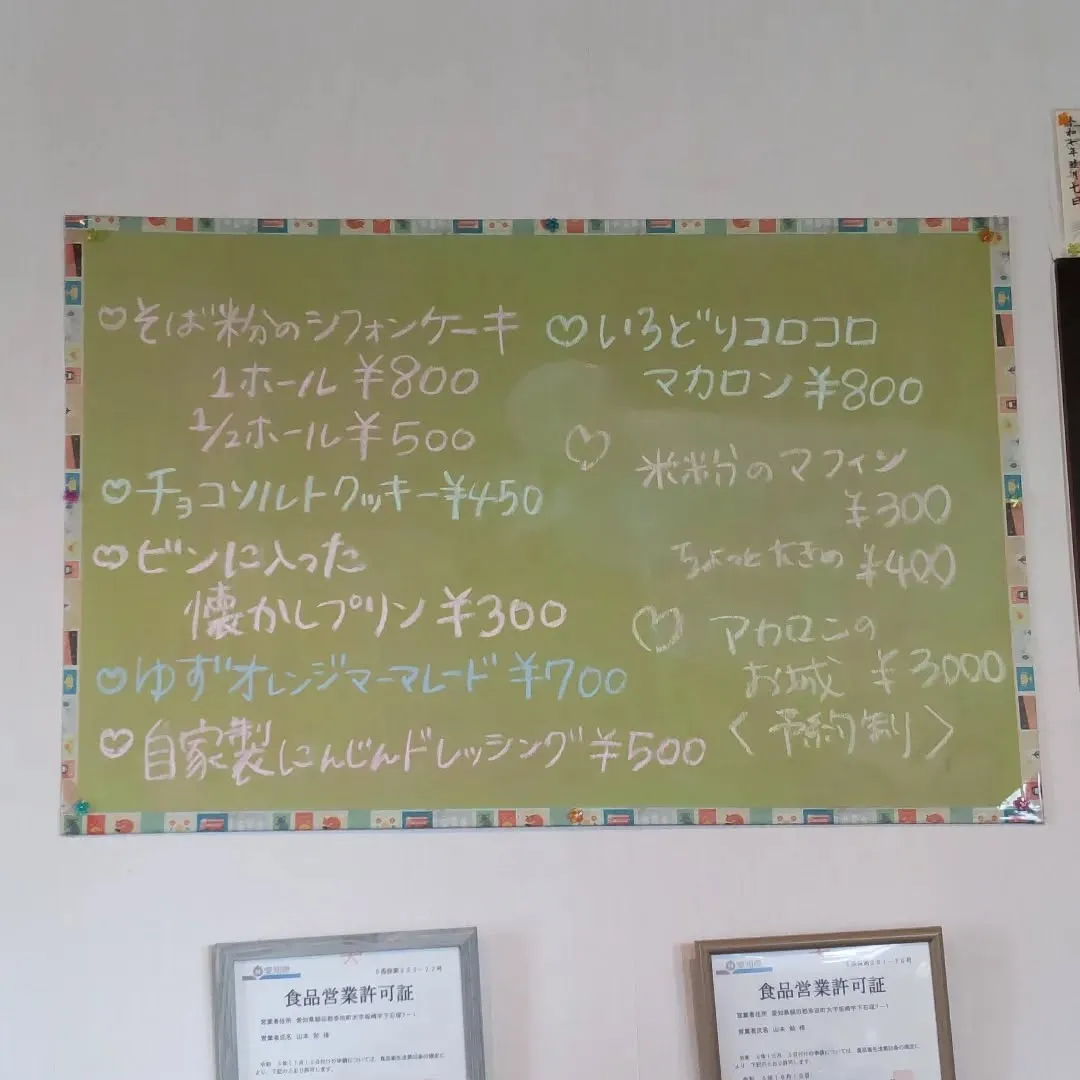 ♡そば粉のシフォンケーキ
1ホール ¥800
1/2ホール ¥500
♡チョコソルトクッキー¥450
♡ビンに入った
懐かしプリン ¥300
♡ゆずオレンジマーマレード ¥700
♡自家製にんじんドレッシング ¥500
♡いろどりコロコロ
マカロン ¥800
♡米粉のマフィン
¥300
ちょっと大きめ ¥400
♡マカロンの
お城 ¥3000
〈予約制〉
食品営業許可証
営業者氏名 山本
食品営業許可証
営業者氏名 山本